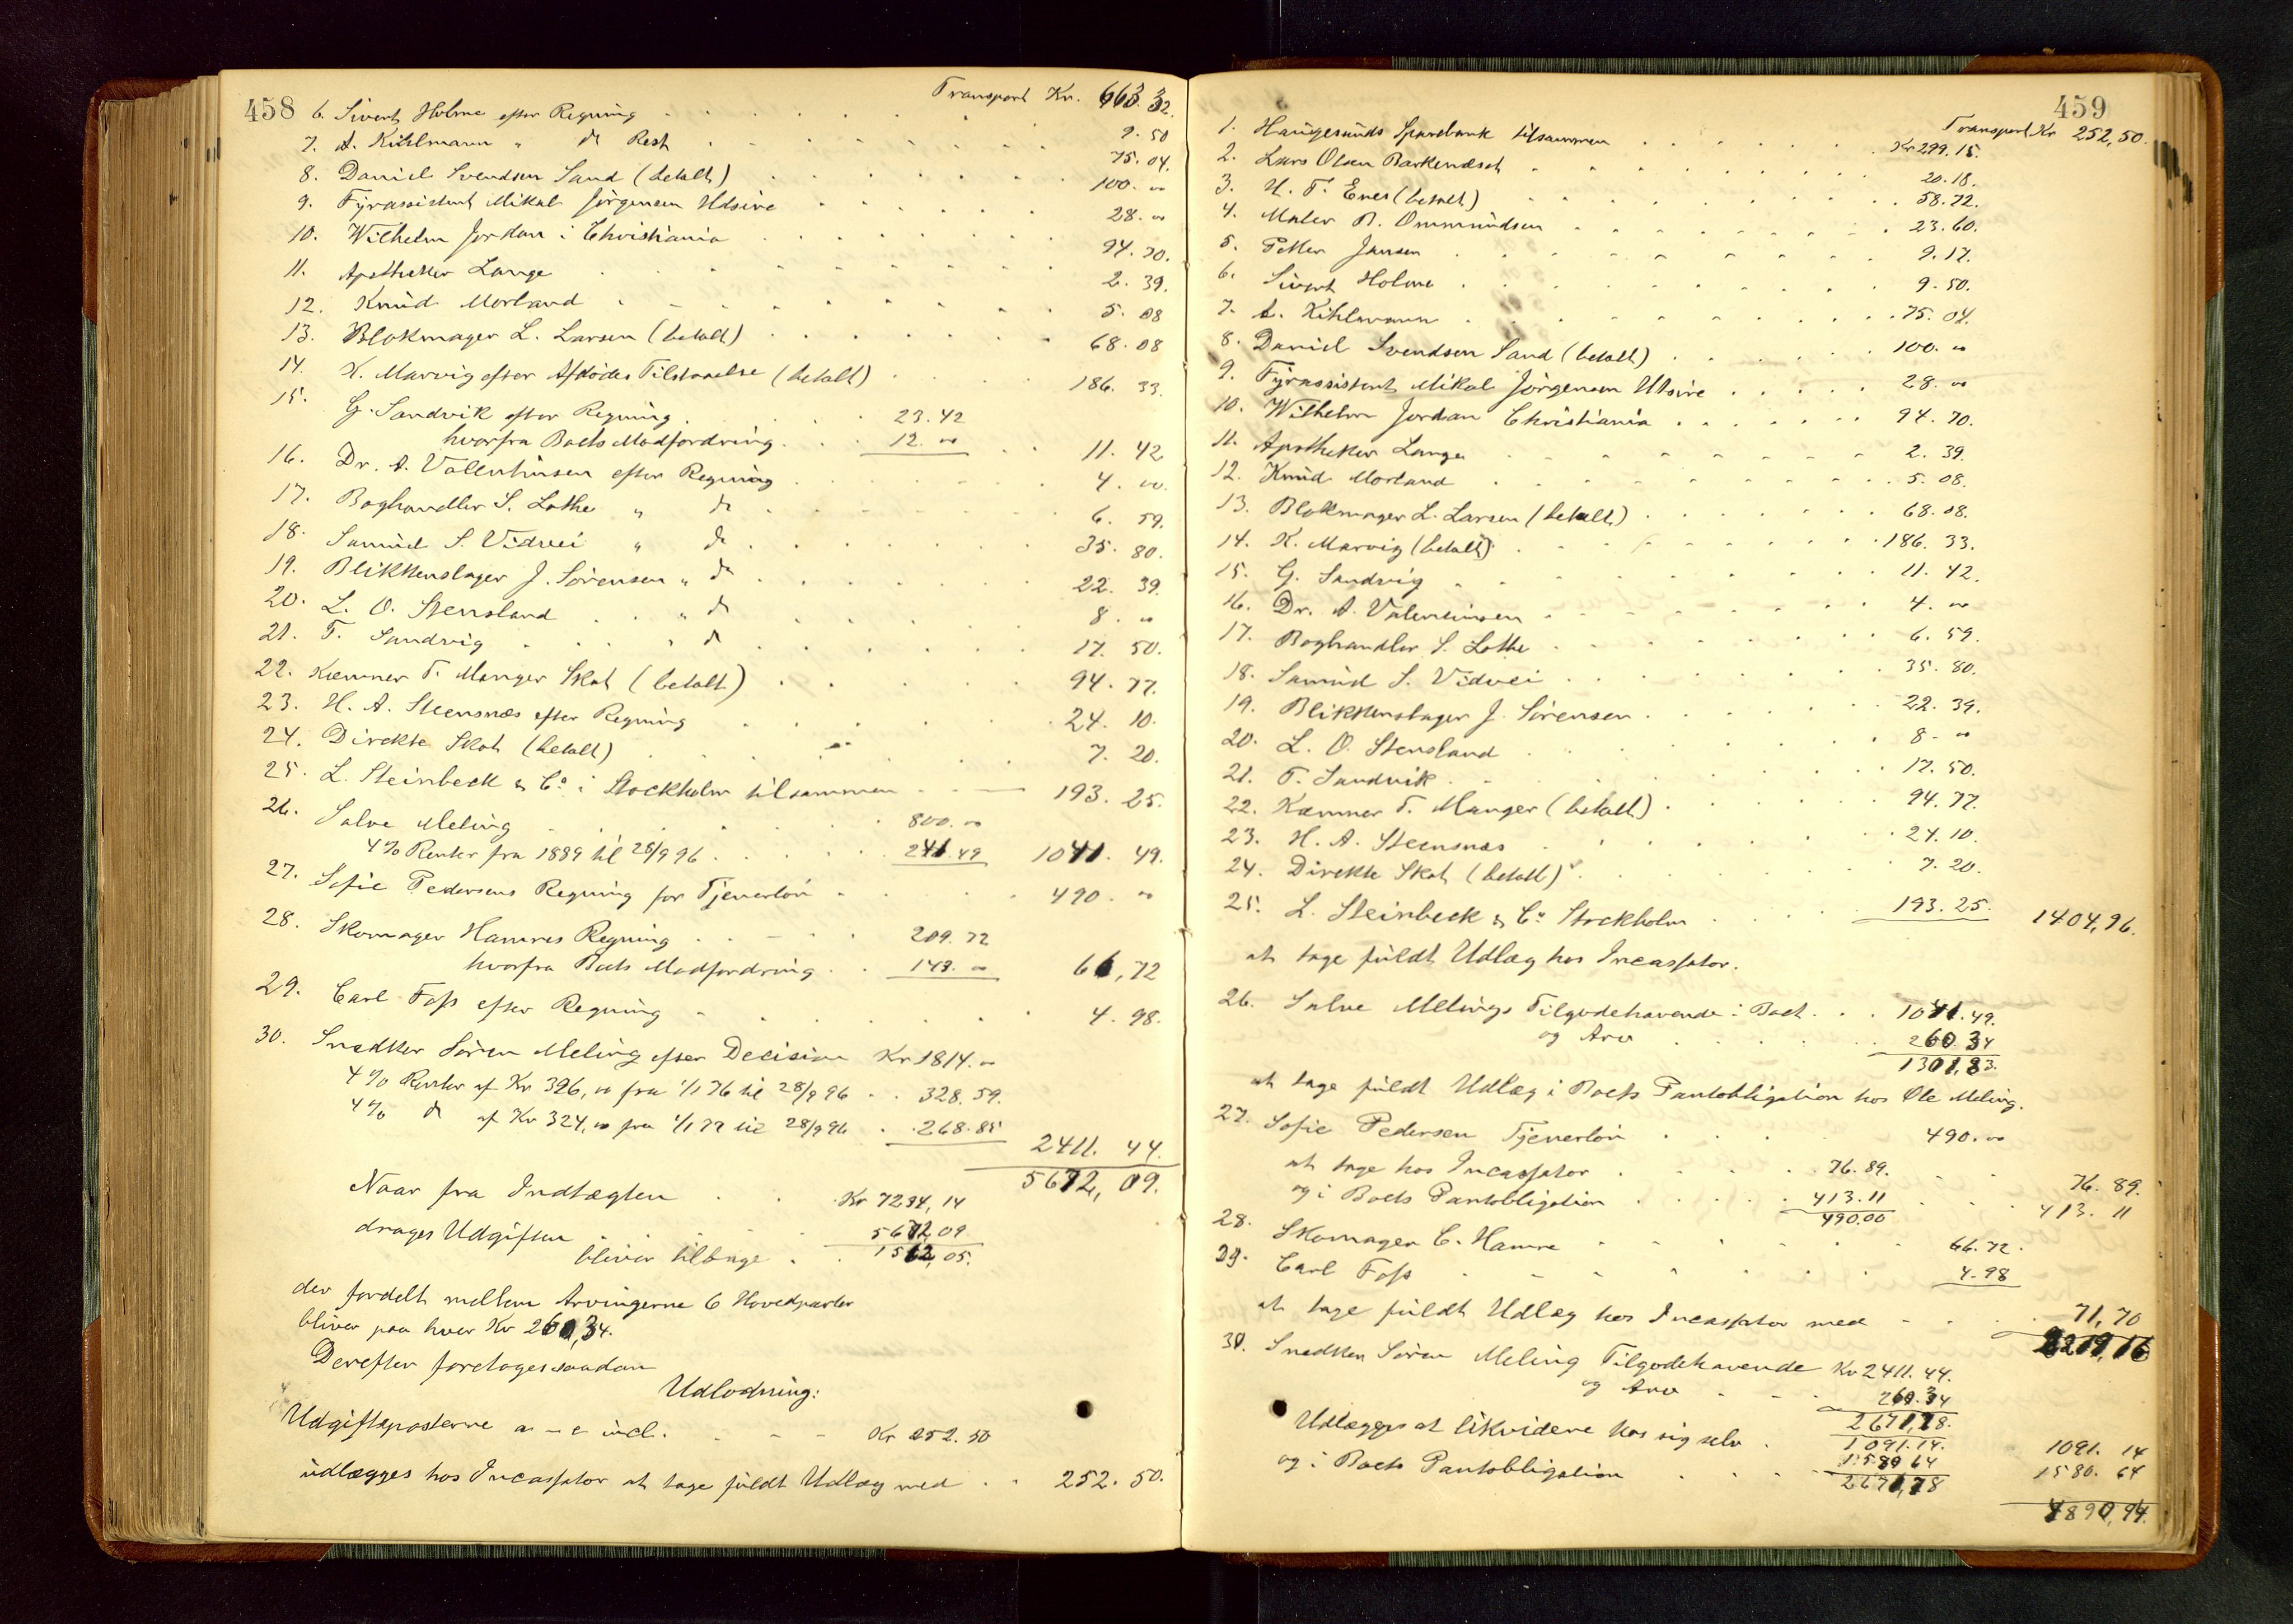 458
Transport Kr. 663.32.
6. Sivert Holme efter Regning 9.50
7. A. Kihlmann " do Rest 75.04.
8. Daniel Svendsen Sand (betalt) 100.00
9. Fyrassistent Mikal Jörgensen Utsire 28.00
10. Wilhelm Jordan i Christiania 94.70.
11. Apotheker Lange 2.39.
12. Knud Morland 5.08
13. Blokmager L. Larsen (betalt) 68.08
14. K. Marvig efter Afdödes Tilstaaelse (betalt) 186.33.
15. G. Sandvik efter Regning 23.42
hvorfra Boets Modfordring 12.00 11.42
16. Dr. A. Valentinsen efter Regning 4.00.
17. Boghandler S. Lothe " do 6.59.
18. Samuel S. Vidvei " do 35.80.
19. Blikkenslager J. Sörensen " do 22.39.
20. L. O. Stensland " do 8.00
21. T. Sandvig " do 17.50.
22. Kæmner T. Manger Skat (betalt) 94.77.
23. H. A. Steensnæs efter Regning 24.10.
24. Direkte Skat (betalt) 7.20.
25. L. Steinbeck & Co i Stockholm tilsammen 193.25.
26. Salve Meling 800.00
4% Renter fra 1889 til 28/9 96 241.49 1041.49.
27. Sofie Pedersens Regning for Tjenerlön 490.00
28. Skomager Hamres Regning 209.72
hvorfra Boets Modfordring 143.00 66,72
29. Carl Foss efter Regning 4.98.
30. Snedker Sören Meling efter Decision Kr 1814.00
4% Renter af Kr 396,00 fra 1/1 76 til 28/9 96 328.59.
4% do af Kr 324,00 fra 1/1 77 til 28/9 96 268.85 2411.44.
5672,09.
Naar fra Indtægten Kr 7234,14
drages Udgiften 5672,09
bliver tilbage 1562,05.
der fordelt mellem Arvingerne 6 Hovedparter
bliver paa hver Kr 260,34.
Derefter foretages saadan
Udlodning:
Udgiftsposterne a – e incl. Kr 252.50
udlægges hos Incassator at tage fuldt Udlæg med 252.50.
459
Transport Kr 252,50.
1. Haugesunds Sparebank tilsammen Kr 299.15.
2. Lars Olsen Barkenæset 20.18.
3. H. T. Enes (betalt) 58.72.
4. Maler R. Ommundsen 23.60.
5. Petter Jansen 9.17.
6. Sivert Holme 9.50.
7. A. Kihlmann 75.04.
8. Daniel Svendsen Sand (betalt) 100.00
9. Fyrassistent Mikal Jörgensen Utsire 28.00
10. Wilhelm Jordan Christiania 94.70.
11. Apotheker Lange 2.39.
12. Knud Morland 5.08.
13. Blokmager L. Larsen (betalt) 68.08.
14. K. Marvig (betalt) 186.33.
15. G. Sandvig 11.42.
16. Dr. A. Valentinsen 4.00
17. Boghandler S. Lothe 6.59.
18. Samuel S. Vidvei 35.80.
19. Blikkenslager J. Sörensen 22.39.
20. L. O. Stensland 8.00
21. T. Sandvik 17.50.
22. Kæmner T. Manger (betalt) 94.77.
23. H. A. Steensnæs 24.10.
24. Direkte Skat (betalt) 7.20.
25. L. Steinbeck & Co Stockholm 193.25. 1404,96.
at tage fuldt Udlæg hos Incassator.
26. Salve Melings Tilgodehavende i Boet 1041.49.
og Arv 260.34
1301,83.
at tage fuldt Udlæg i Boets Pantobligation hos Ole Meling.
27. Sofie Pedersen Tjenerlön 490.00
at tage hos Incassator 76.89. 76.89.
og i Boets Pantobligation 413.11 413.11
490.00
28. Skomager C. Hamre 66.72.
29. Carl Foss 4.98
at tage fuldt Udlæg hos Incassator med 71,70
2219,16
30. Snedker Sören Meling Tilgodehavende Kr 2411.44.
og Arv 260.34
2671,78.
Udlægges at likvidere hos sig selv 1091.14. 1091.14
og i Boets Pantobligation 1580.64 1580.64
2671,78
4890,94.